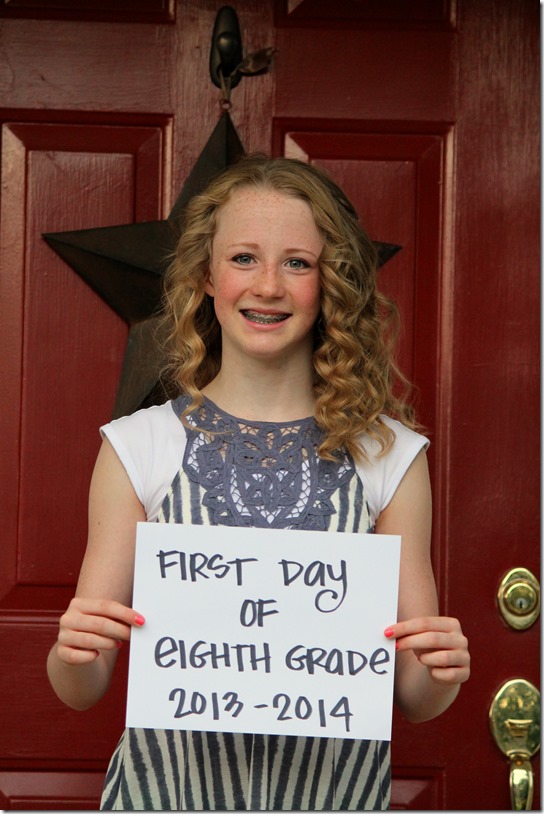 FIRST Day
OF
eIGHTH GRaDe
2013-2014